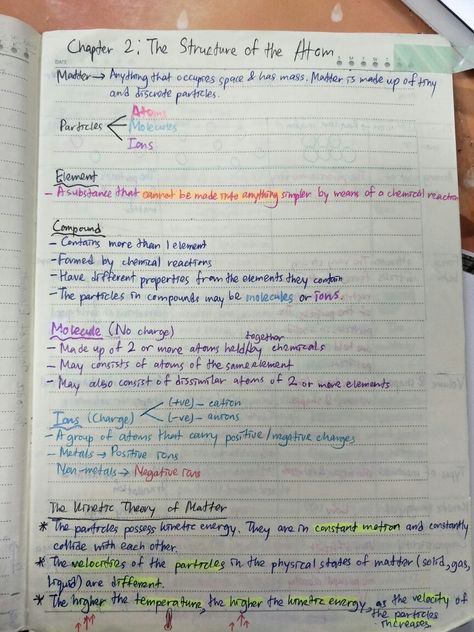 Chapter 2: The Structure of the Atom
DATE
Matter → Anything that occupies space & has mass. Matter is made up of tiny
and discrete particles.
Atoms
Particles Molecules
Ions
Element
- A substance that cannot be made into anything simpler by means of a chemical reaction
Compound
- Contains more than 1 element
- Formed by chemical reactions
- Have different properties from the elements they contain
- The particles in compounds may be molecules or ions.
Molecule (No charge)
together
- Made up of 2 or more atoms held/by chemicals
- May consists of atoms of the same element
- May also consist of dissimilar atoms of 2 or more elements
(+ve) - cation
Ions (Charge)
(-ve) - anions
- A group of atoms that carry positive/negative charges
- Metals → Positive ions
Non-metals → Negative ions
The Kinetic Theory of Matter
* The particles possess kinetic energy. They are in constant motion and constantly
collide with each other.
* The velocities of the particles in the physical states of matter (solid, gas,
liquid) are different.
* The higher the temperature, the higher the kinetic energy, as the velocity of
the particles
increases.